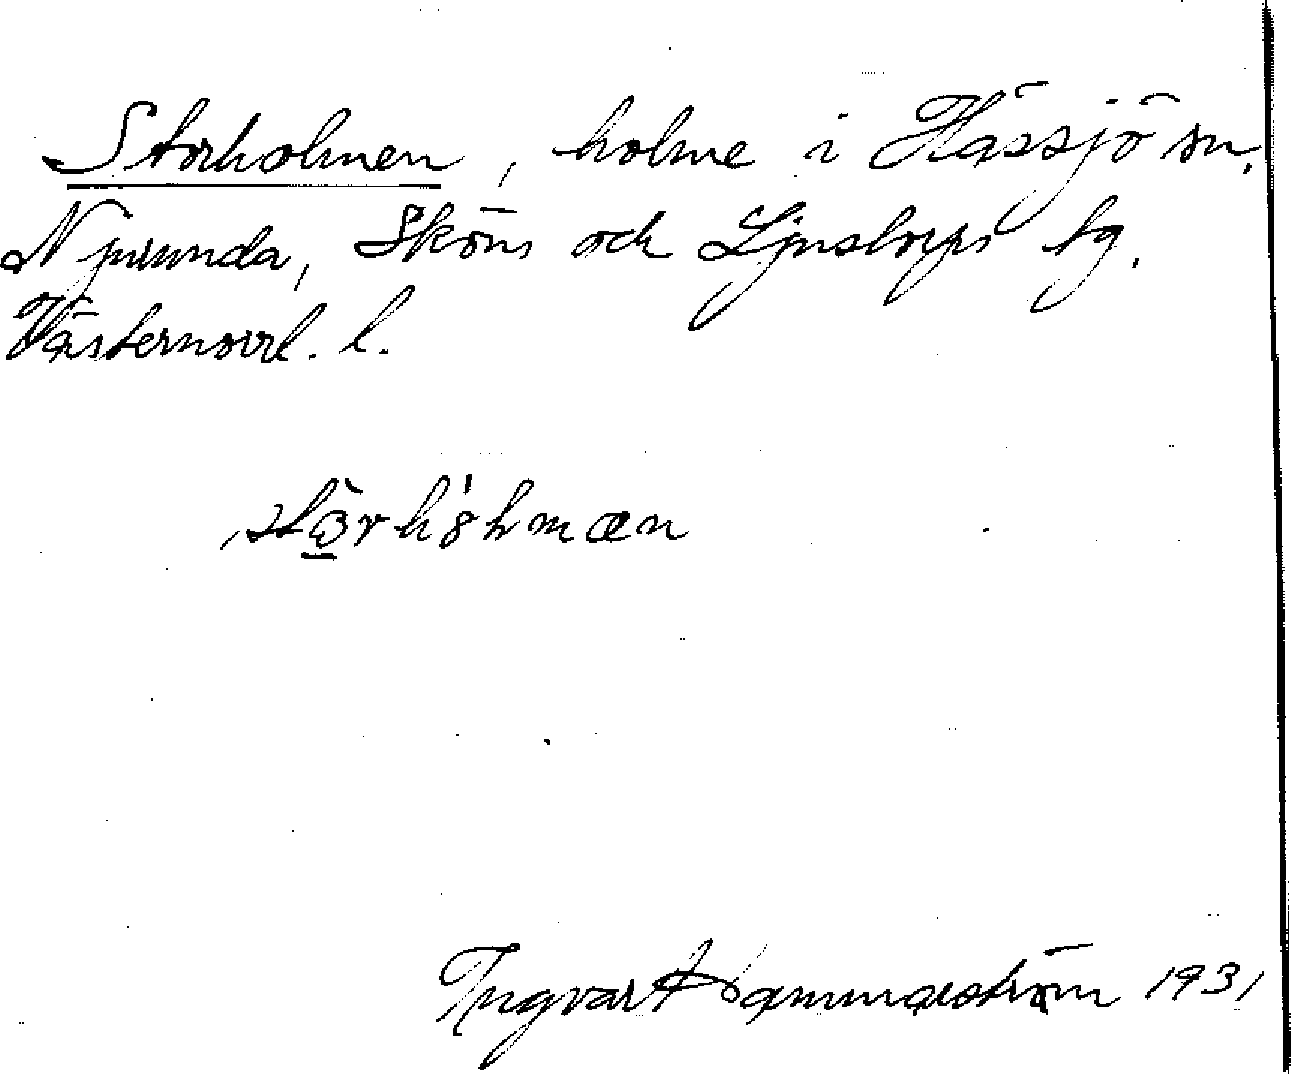 Storholmen, holme i Hässjö sn,
Njurunda, Sköns och Ljustorps tg.
Västernorrl. l.
Ingvar Hammarström 1931